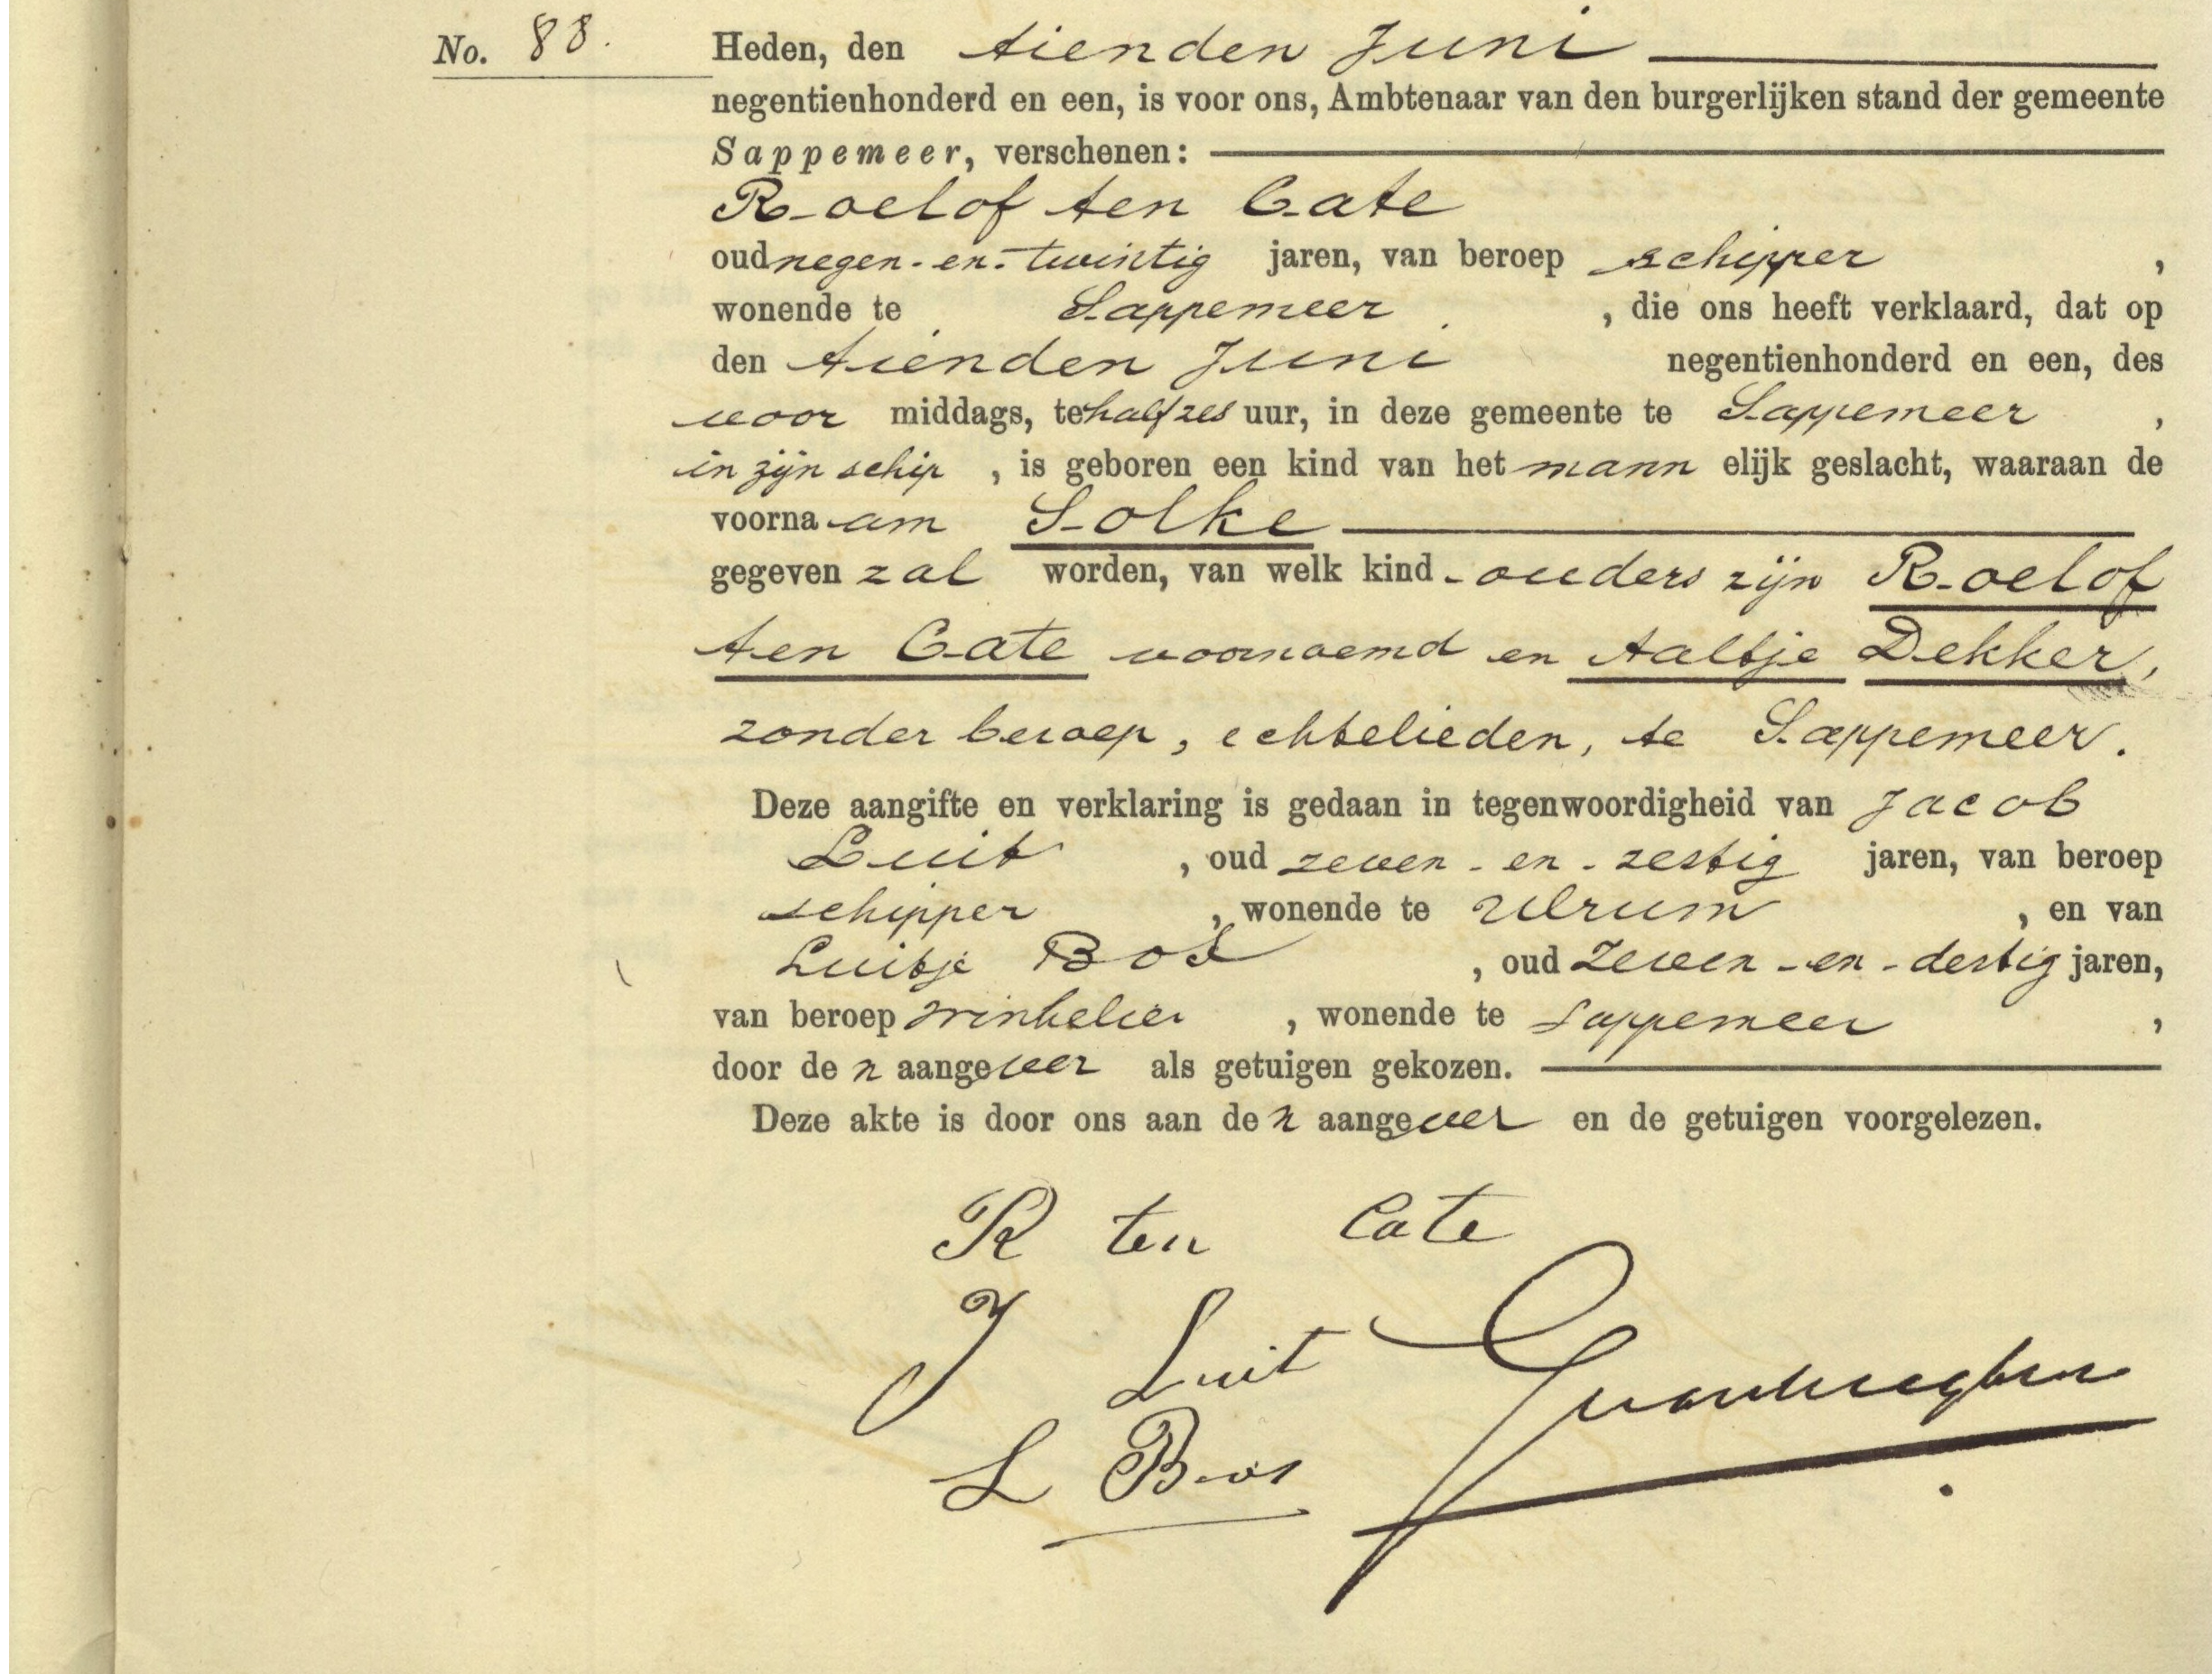 No. 88. Heden, den tienden Juni
negentienhonderd en een, is voor ons, Ambtenaar van den burgerlijken stand der gemeente
Sappemeer, verschenen:
Roelof ten Cate
oud negen-en-twintig jaren, van beroep schipper,
wonende te Sappemeer, die ons heeft verklaard, dat op
den tienden Juni negentienhonderd en een, des
voor middags, te half zes uur, in deze gemeente te Sappemeer,
in zijn schip, is geboren een kind van het mannelijk geslacht, waaraan de
voornaam Solke
gegeven zal worden, van welk kind ouders zijn Roelof
ten Cate voornoemd en Aaltje Dekker,
zonder beroep, echtelieden, te Sappemeer.
Deze aangifte en verklaring is gedaan in tegenwoordigheid van Jacob
Luit, oud zeven-en-zestig jaren, van beroep
schipper, wonende te Ulrum, en van
Luitje Bos, oud zeven-en-dertig jaren,
van beroep winkelier, wonende te Sappemeer,
door den aangever als getuigen gekozen.
Deze akte is door ons aan den aangever en de getuigen voorgelezen.
R ten Cate
J Luit
L Bos